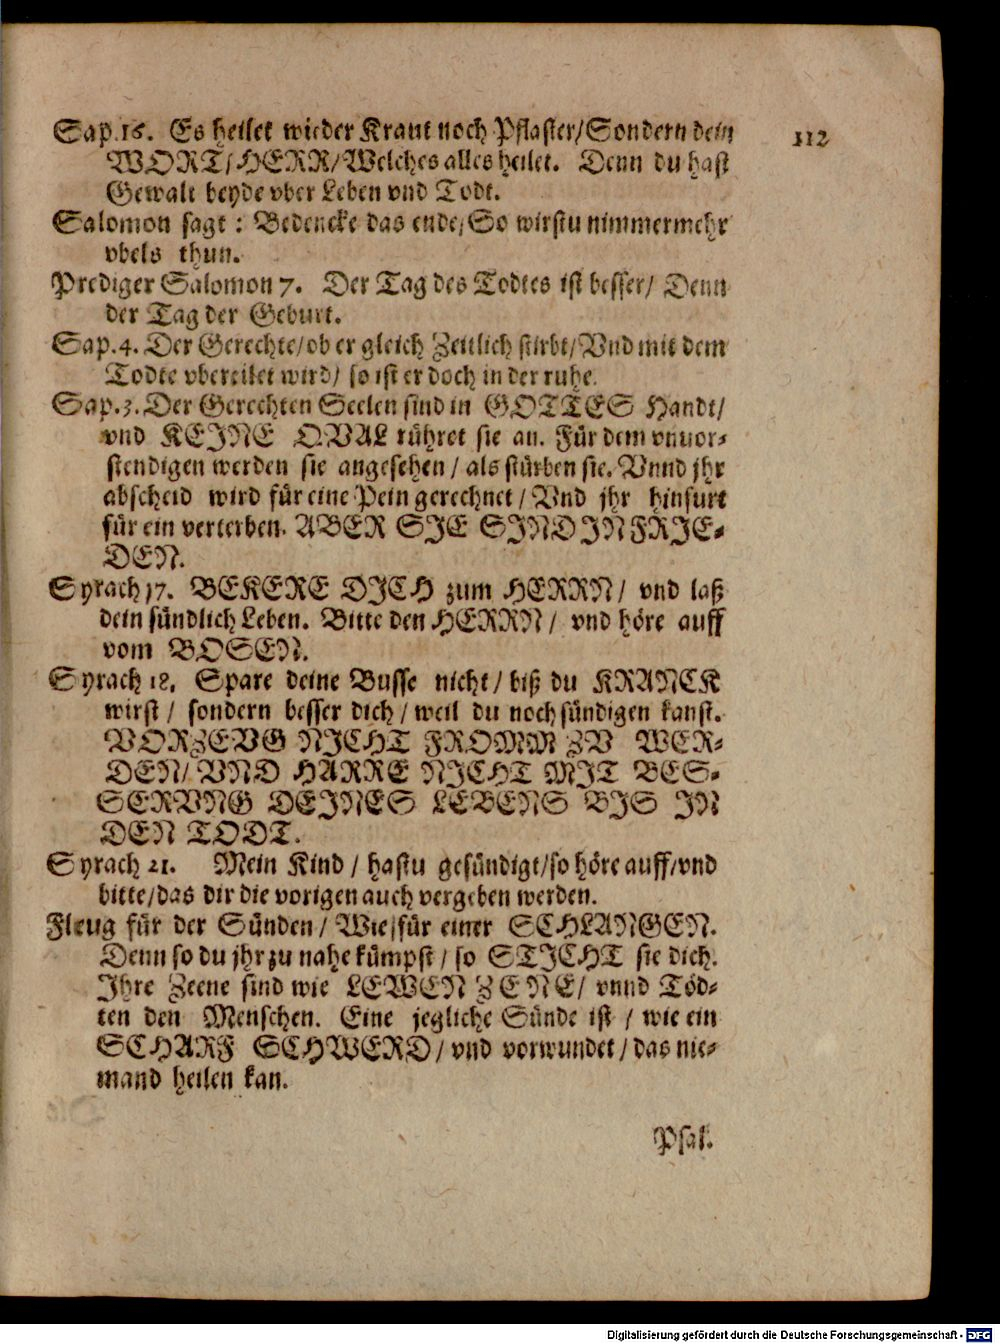 112
Sap. 16. Es heilet wieder Kraut noch Pflaster/Sondern dein
WORT/HERR/Welches alles heilet. Denn du hast
Gewalt beyde vber Leben vnd Todt.
Salomon sagt : Bedencke das ende/So wirstu nimmermehr
vbels thun.
Prediger Salomon 7. Der Tag des Todtes ist besser/ Denn
der Tag der Geburt.
Sap. 4. Der Gerechte/ob er gleich Zeitlich stirbt/Vnd mit dem
Todte vbereilet wird/ so ist er doch in der ruhe.
Sap. 3. Der Gerechten Seelen sind in GOTTES Handt/
vnd KEINE QVAL rühret sie an. Für dem vnuor-
stendigen werden sie angesehen / als stürben sie. Vnnd jhr
abscheid wird für eine Pein gerechnet / Vnd jhr hinfurt
für ein verterben. ABER SIE SIND IN FRIE-
DEN.
Syrach 17. BEKERE DICH zum HERRN / vnd laß
dein sündlich Leben. Bitte den HERRN / vnd höre auff
vom BOSEN.
Syrach 18. Spare deine Busse nicht / biß du KRANCK
wirst / sondern besser dich / weil du noch sündigen kanst.
VORZEVG NICHT FROMM ZV WER-
DEN/ VND HARRE NICHT MIT BES-
SERVNG DEINES LEBENS BIS IN
DEN TODT.
Syrach 21. Mein Kind / hastu gesündigt/so höre auff/vnd
bitte/das dir die vorigen auch vergeben werden.
Fleug für der Sünden / Wie/für einer SCHLANGEN.
Denn so du jhr zu nahe kümpst / so STICHT sie dich.
Ihre Zeene sind wie LEWEN ZENE/ vnnd Töd-
ten den Menschen. Eine jegliche Sünde ist / wie ein
SCHARF SCHWERD / vnd vorwundet / das nie-
mand heilen kan.
Psal.
Digitalisierung gefördert durch die Deutsche Forschungsgemeinschaft - DFG